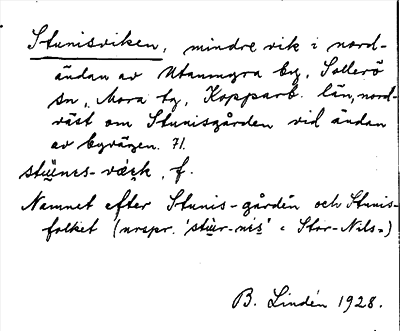 Stunisviken, mindre vik i nord-
ändan av Utanmyra by, Sollerö
sn, Mora tg, Kopparb. län, nord-
väst om Stunisgården vid ändan
av byvägen. 71.
stūnɪs-væk, f.
Namnet efter Stunis-gården och Stunis-
folket (urspr. 'stūr-nis' = Stor-Nils-)
B. Lindén 1928.